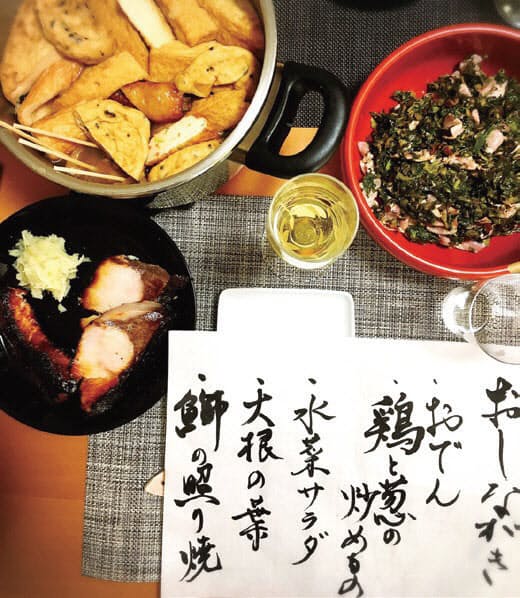 おしながき
・おでん
・鶏と葱の
炒めもの
・水菜サラダ
・大根の葉
・鰤の照り焼